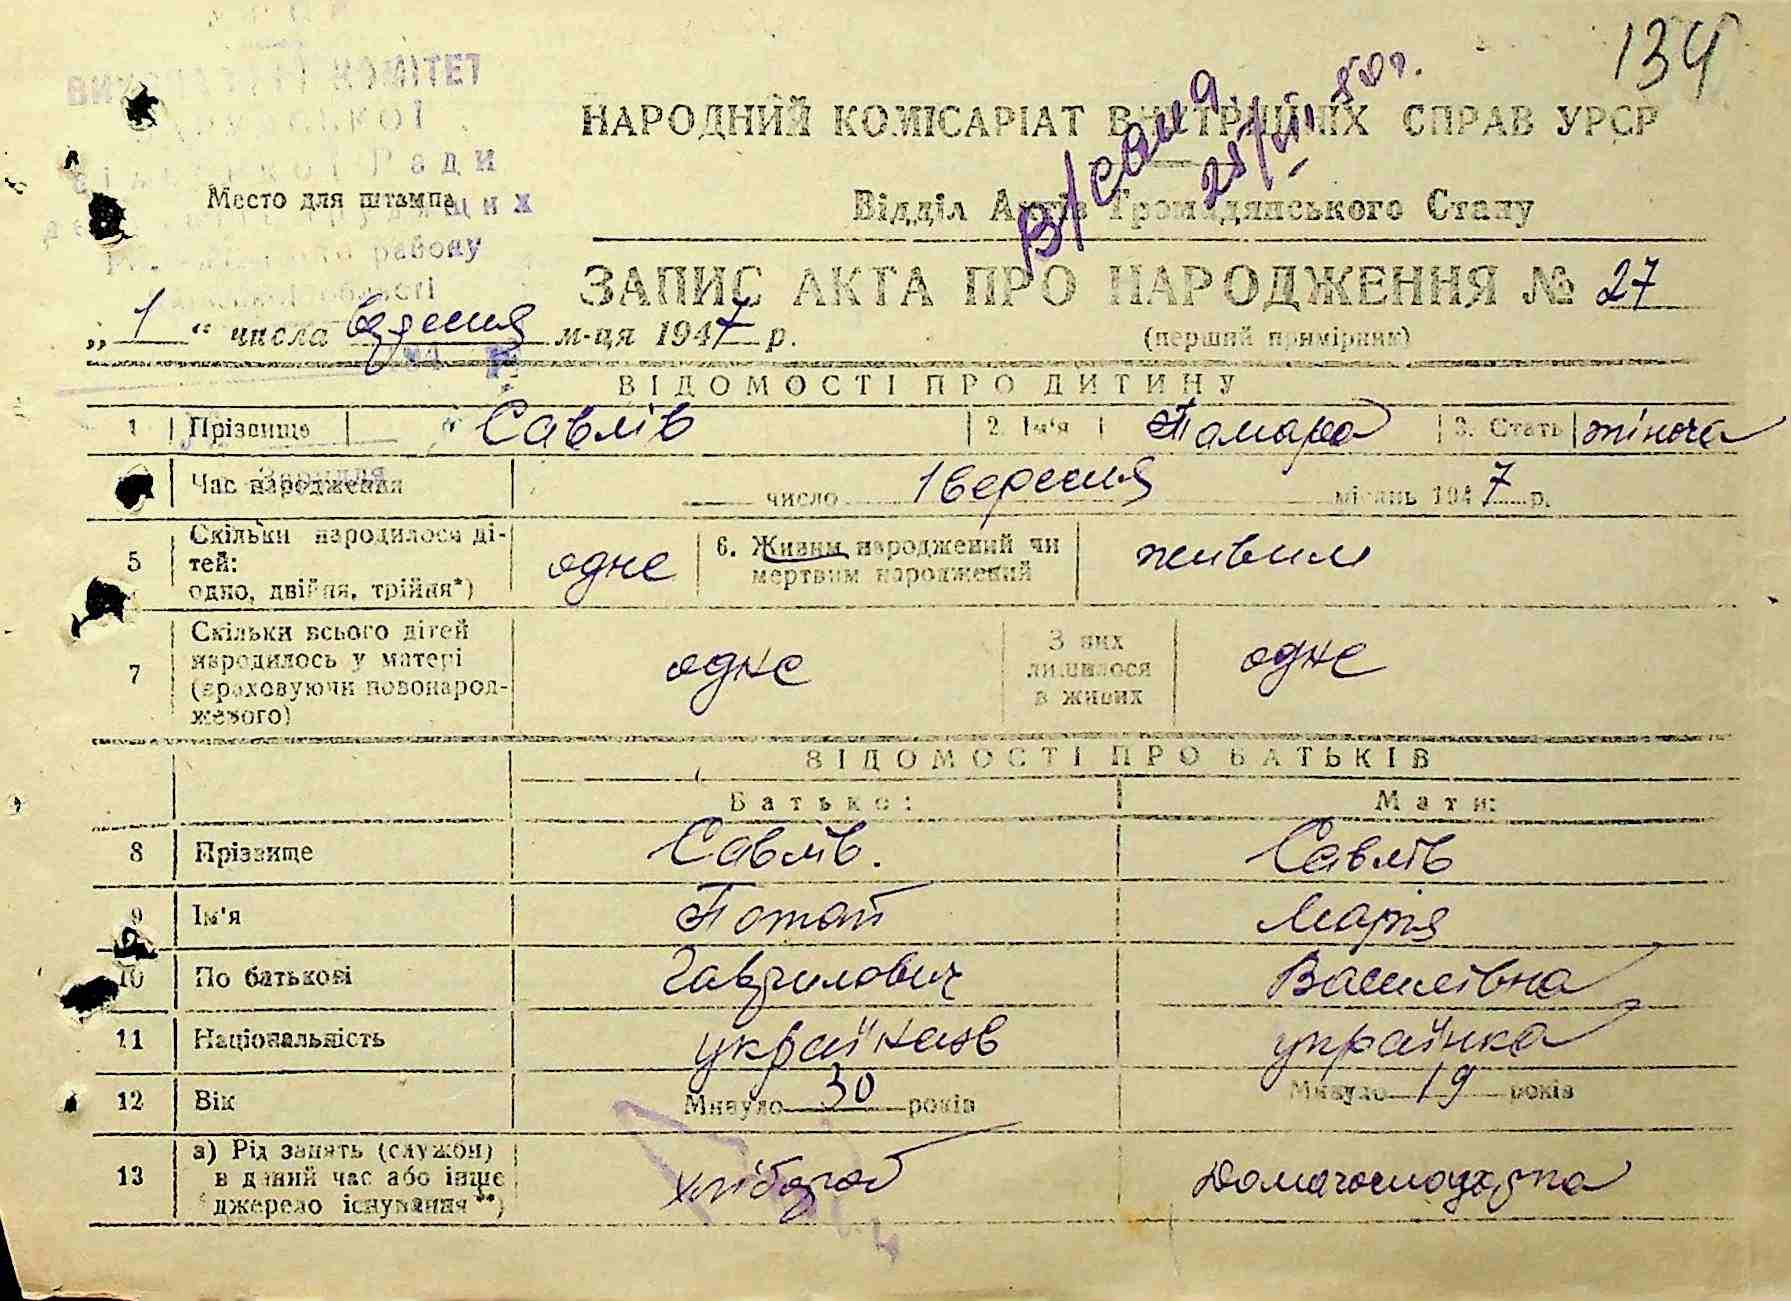 134
ВИКОНАВЧИЙ КОМІТЕТ
Ради
району
області
Место для штампа
НАРОДНИЙ КОМІСАРІАТ ВНУТРІШНІХ СПРАВ УРСР
Відділ Актів Громадянського Стану
ЗАПИС АКТА ПРО НАРОДЖЕННЯ № 27
„ 1 “ числа вересня м-ця 1947 р.
(перший примірник)
ВІДОМОСТІ ПРО ДИТИНУ
1 Прізвище Савлів 2. Ім'я Тамара 3. Стать жіноча
Час народження число 1 вересня місяць 1947 р.
5 Скільки народилося ді-
тей:
одно, двійня, трійня*)
одне
6. Живим народжений чи
мертвим народжений
живим
7 Скільки всього дітей
народилось у матері
(враховуючи новонарод-
женого)
одне
З них
лишилося
в живих
одне
ВІДОМОСТІ ПРО БАТЬКІВ
Батько: Мати:
8 Прізвище Савлів. Савлів
9 Ім'я Потап Марія
10 По батькові Гаврилович Василівна
11 Національність українець українка
12 Вік Минуло 30 років Минуло 19 років
13 а) Рід занять (служби)
в даний час або інше
джерело існування**)
хлібороб домогосподарка